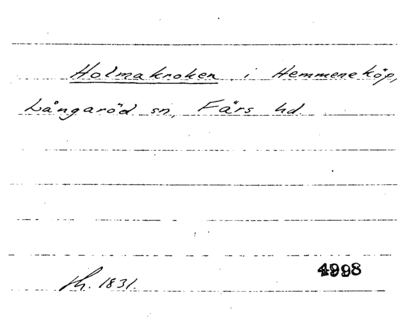 Holmakroken i Hemmeneköp,
Långaröd sn, Färs hd
1831.
4998